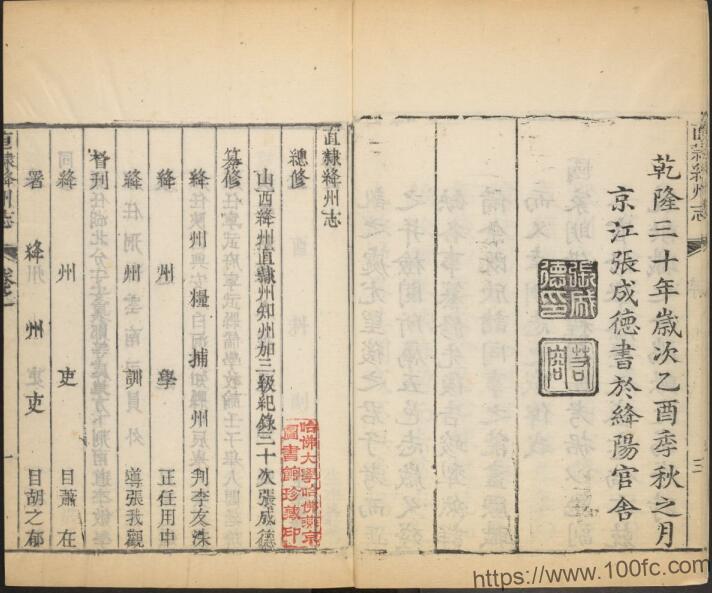 直隸絳州志
三
乾隆三十年歲次乙酉季秋之月
京江張成德書於絳陽官舍
張成德印
直隸絳州志
總修
山西絳州直隸州知州加三級紀錄三十次張成德
哈佛大學哈佛燕京
圖書館珍藏印
纂修
絳州糧捕州判李友洙
絳州學正任用中
絳州訓導張我觀
督刊
絳州吏目蕭在
署絳州吏目胡之郁
直隸絳州志
一
https://www.100fc.com